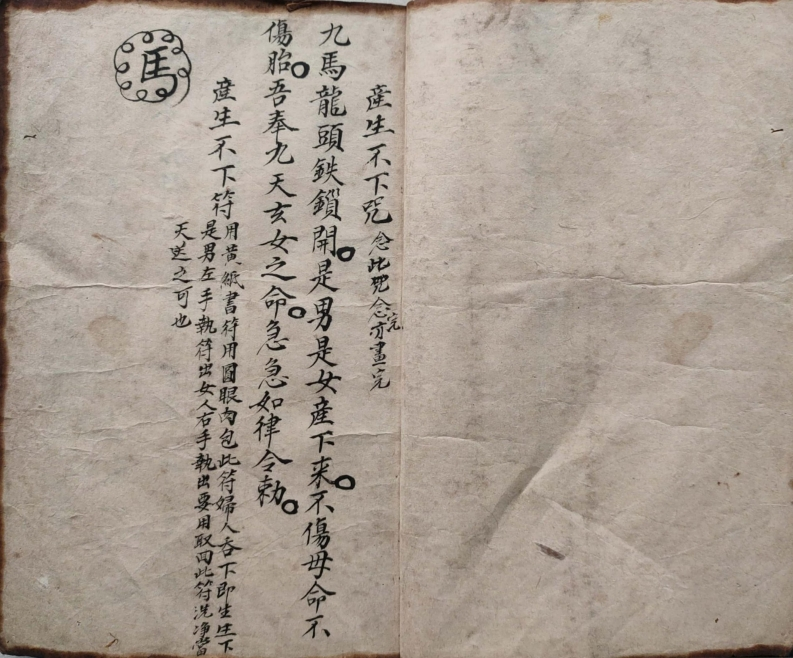 產生不下咒 念此咒念完亦畫完
九馬龍頭鉄鎖開。是男是女產下来。不傷母命不
傷胎。吾奉九天玄女之命。急急如律令勅。
產生不下符
用黃紙書符用圓眼肉包此符婦人吞下即生生下
是男左手執符出女人右手執出要用取回此符洗净當
天送之可也
馬